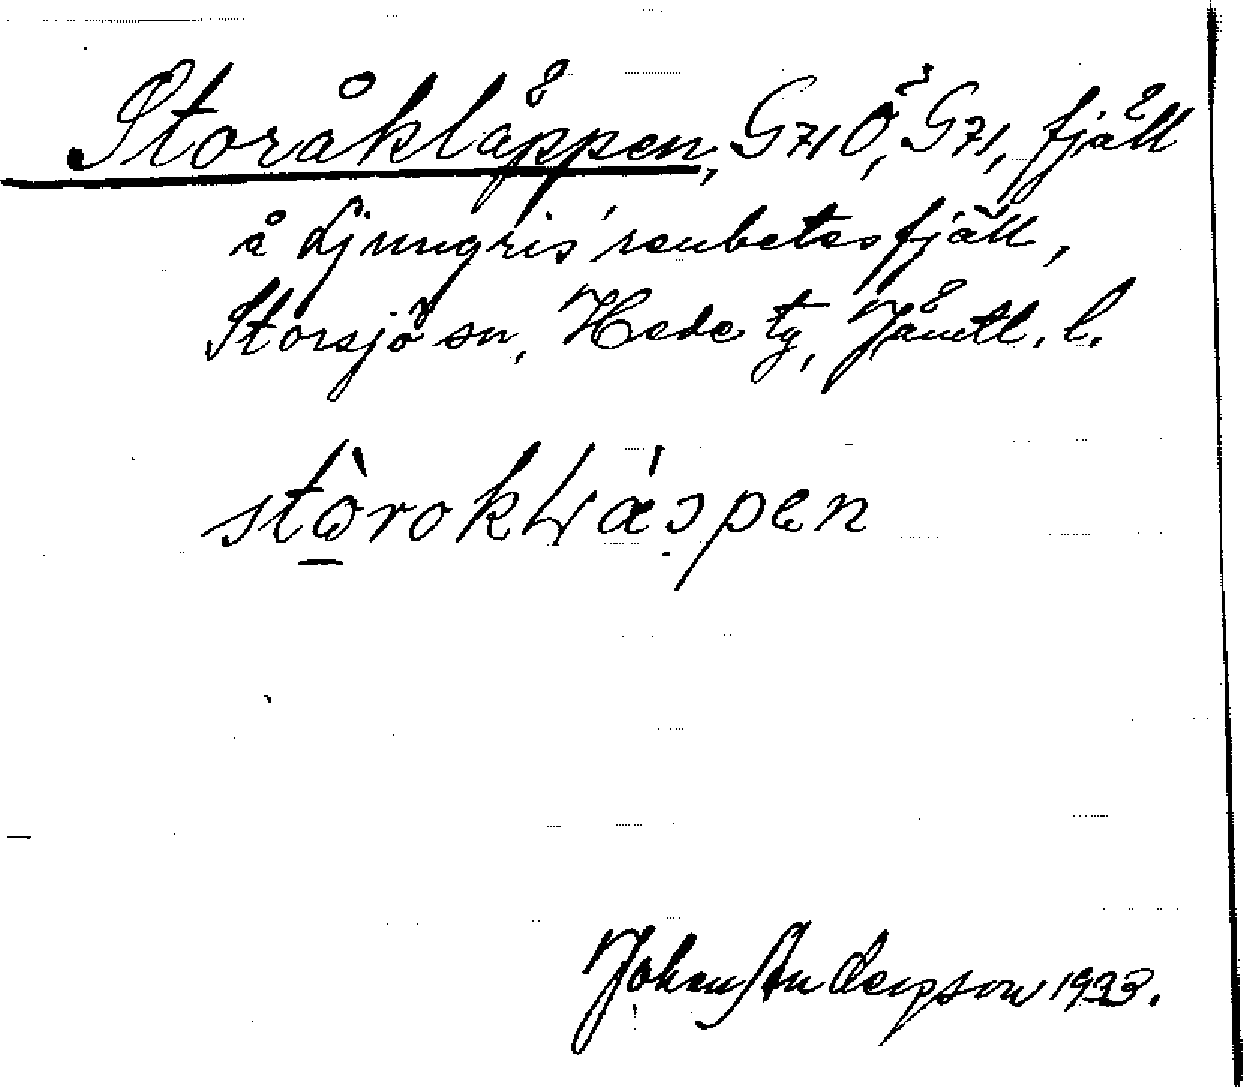 Storåkläppen, G71Ö, G71, fjäll
å Ljungris' renbetesfjäll,
Storsjö sn, Hede tg, Jämtl. l.
Johan Anderson 1933.